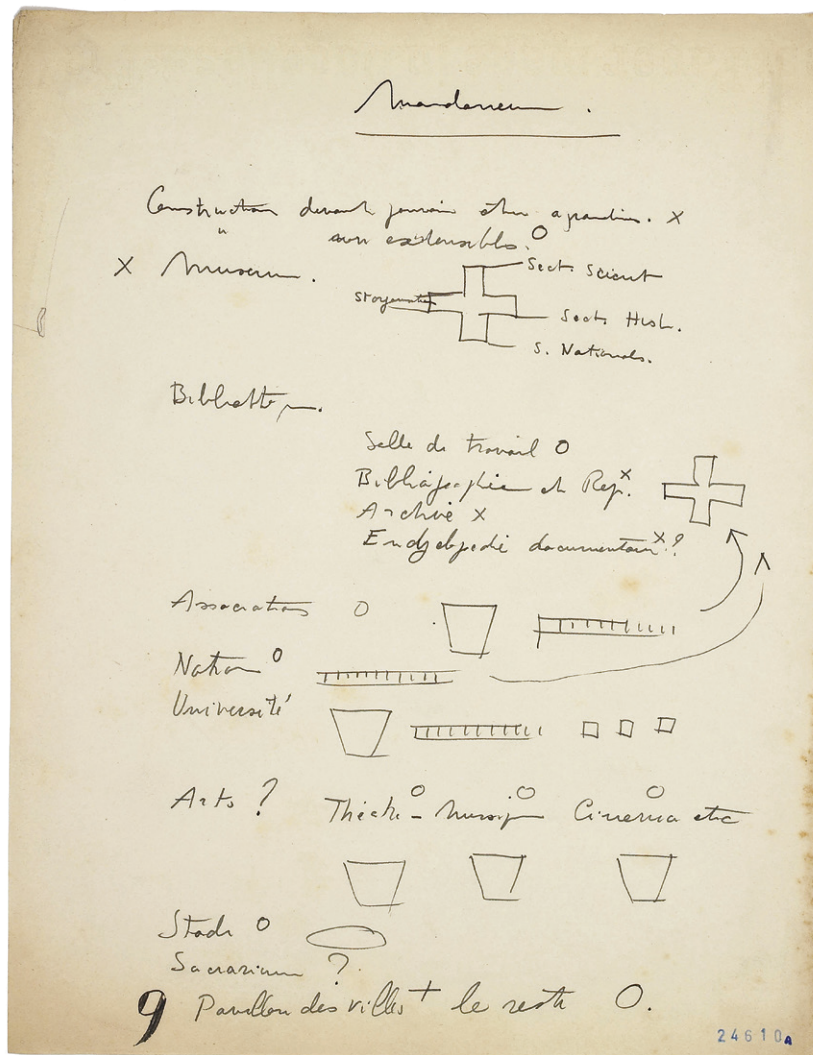 Mundaneum.
Construction devant pouvoir être agrandies. X
" non extensibles. O
X Museum.
Sect. Scient
Sect. Hist.
S. Nationals.
Bibliothèque.
Salle de travail O
Bibliographie et Rep. X
Archive X
Encyclopedie documentaire X?
Associations O
Nation O
Université
Arts ? Théâtre - Musique Cinema etc
O O O
Stade O
Sacrarium ?
9 Pavillon des villes + le reste O.
24610A